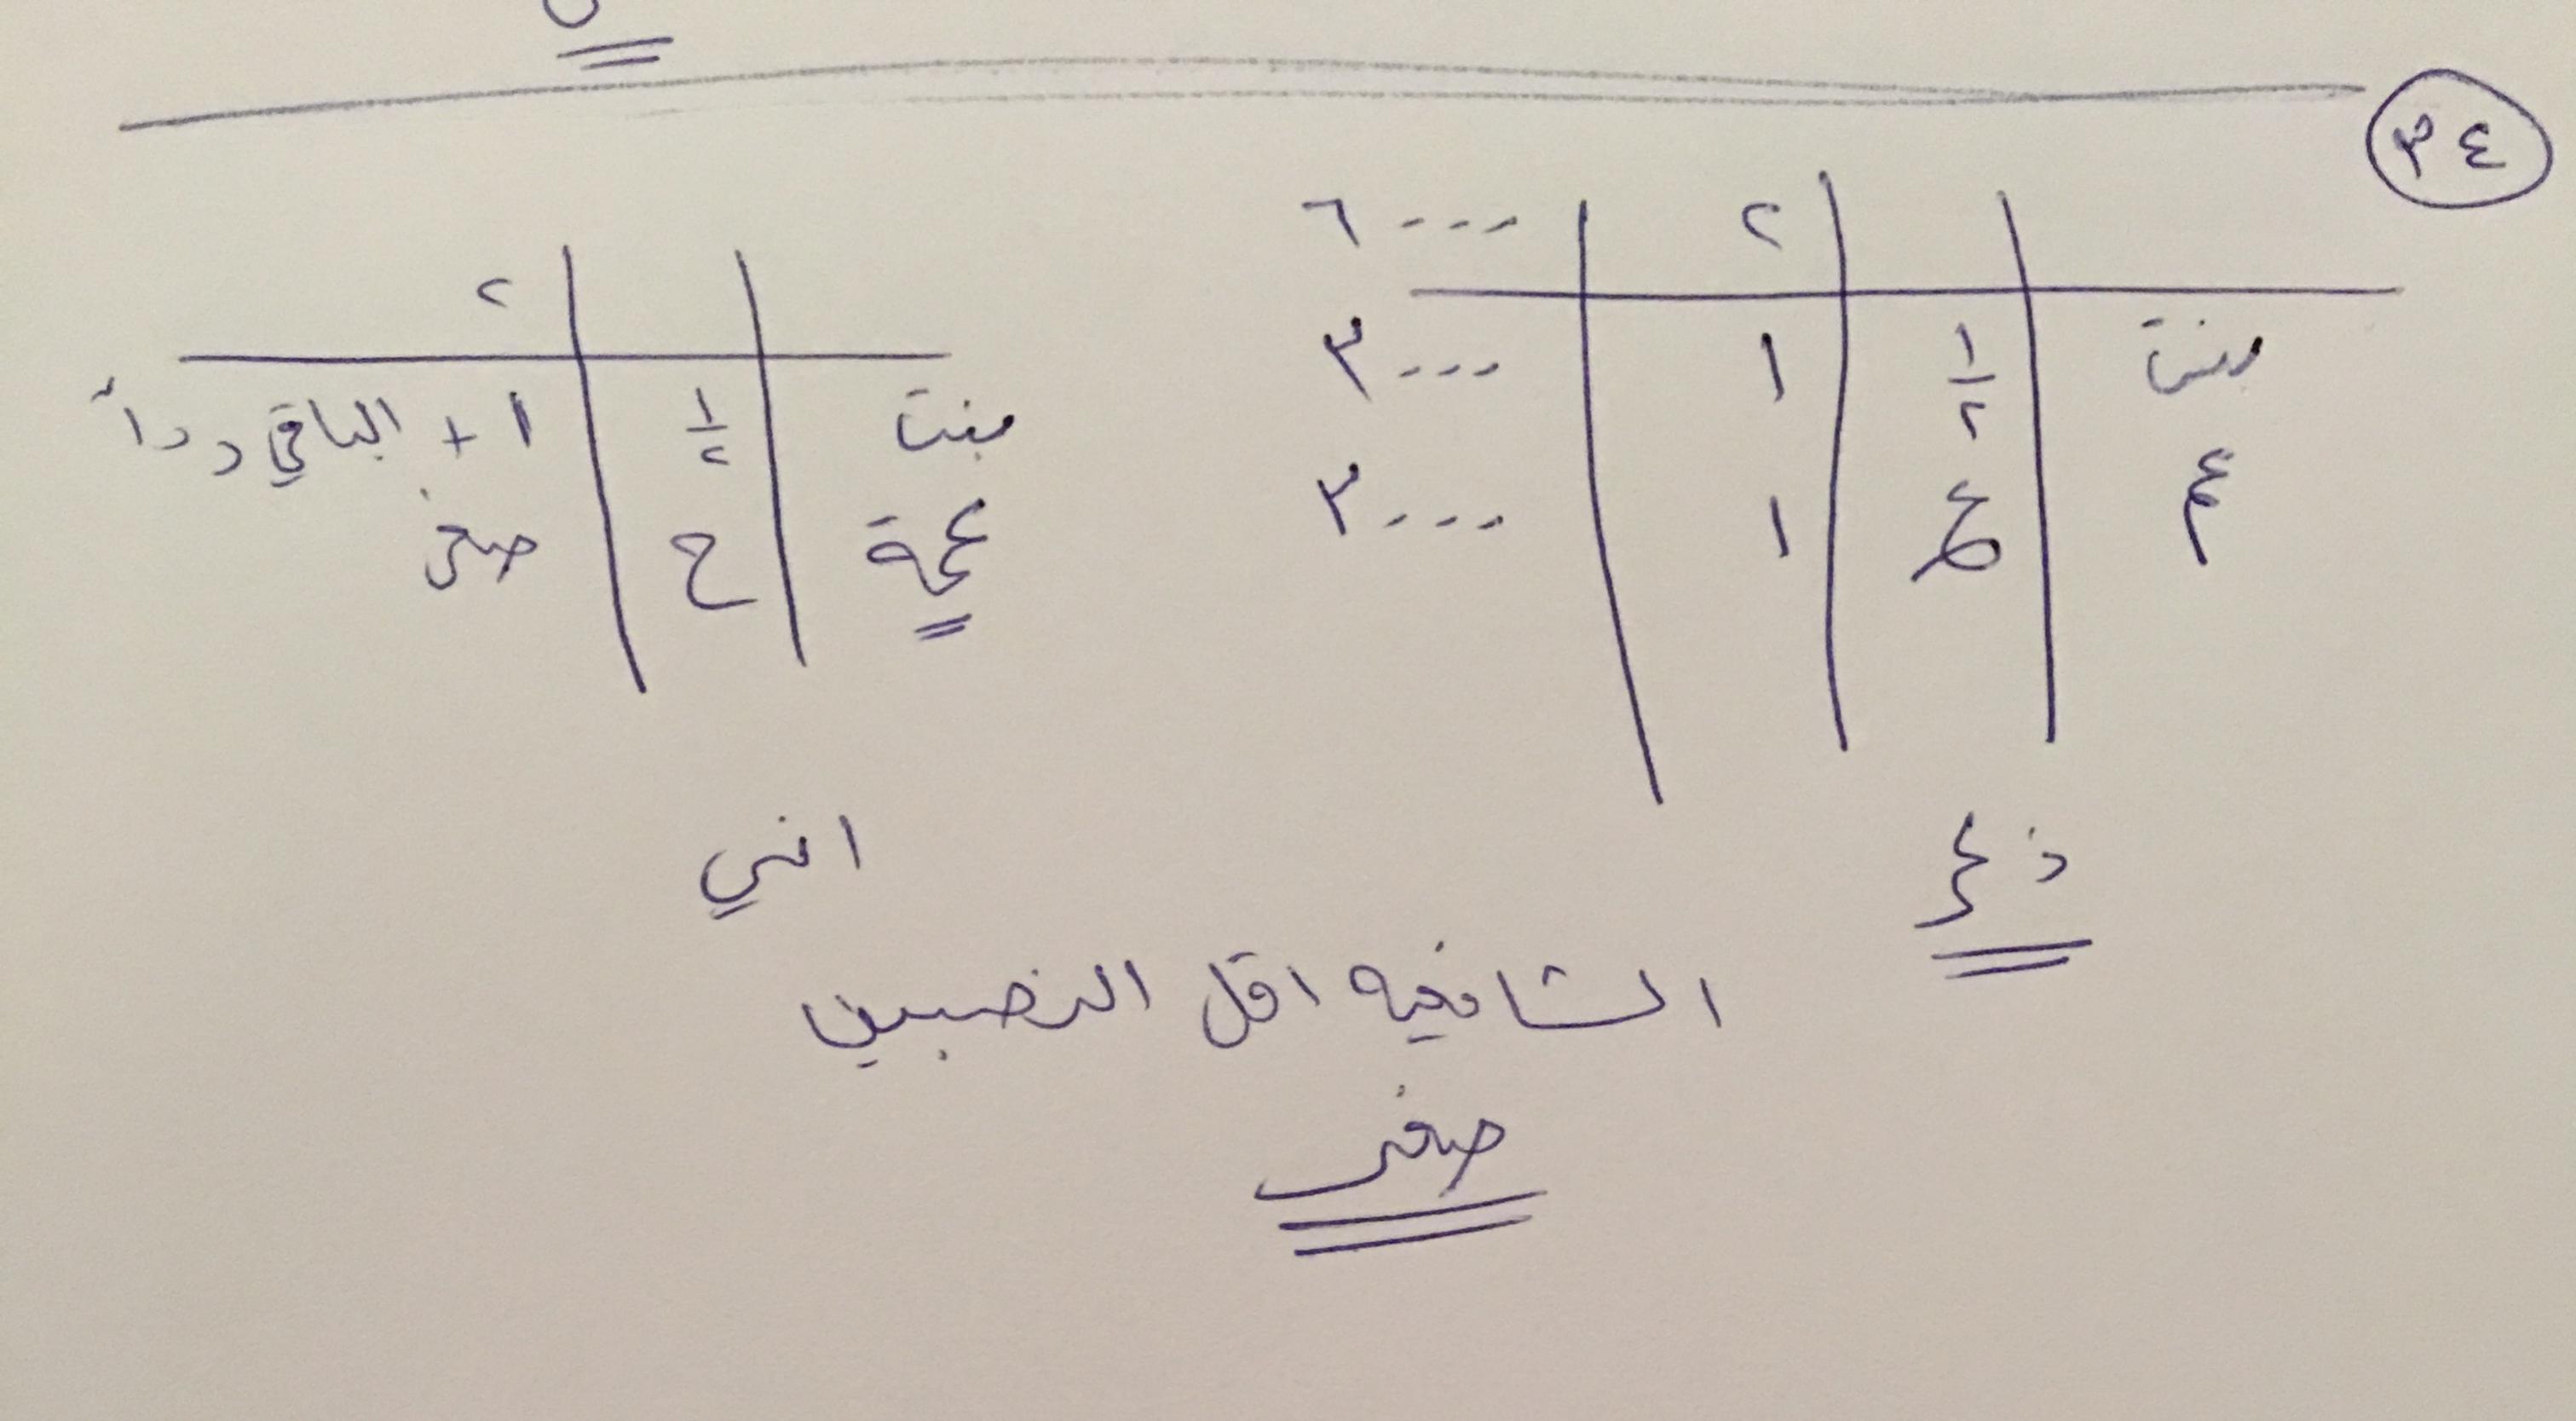 ٣٤
٢ ٦٠٠٠
بنت ١/٢ ١ ٣٠٠٠
عم ع ١ ٣٠٠٠
ذكر
٢
بنت ١/٢ ١ + الباقي رداً
عمة ح صفر
انثى
الشافعيه اقل النصيبين
صفر